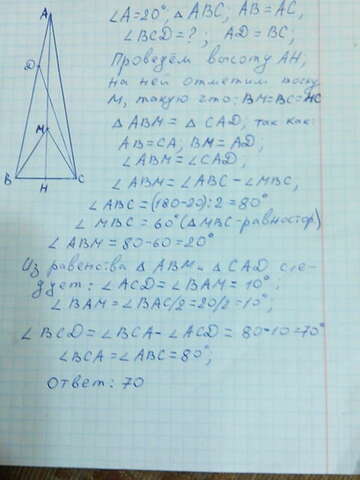 ∠A=20°, △ABC; AB=AC,
∠BCD=?; AD=BC;
Проведём высоту AH,
на ней отметим точку
M, такую что: BM=BC=MC
△ABM=△CAD, так как:
AB=CA; BM=AD;
∠ABM=∠CAD,
∠ABM=∠ABC-∠MBC,
∠ABC=(180-20):2=80°
∠MBC=60°(△MBC-равностор)
∠ABM=80-60=20°
Из равенства △ABM и △CAD сле-
дует: ∠ACD=∠BAM=10°,
∠BAM=∠BAC/2=20/2=10°,
∠BCD=∠BCA-∠ACD=80-10=70°
∠BCA=∠ABC=80°;
Ответ: 70
A
D
M
B
H
C